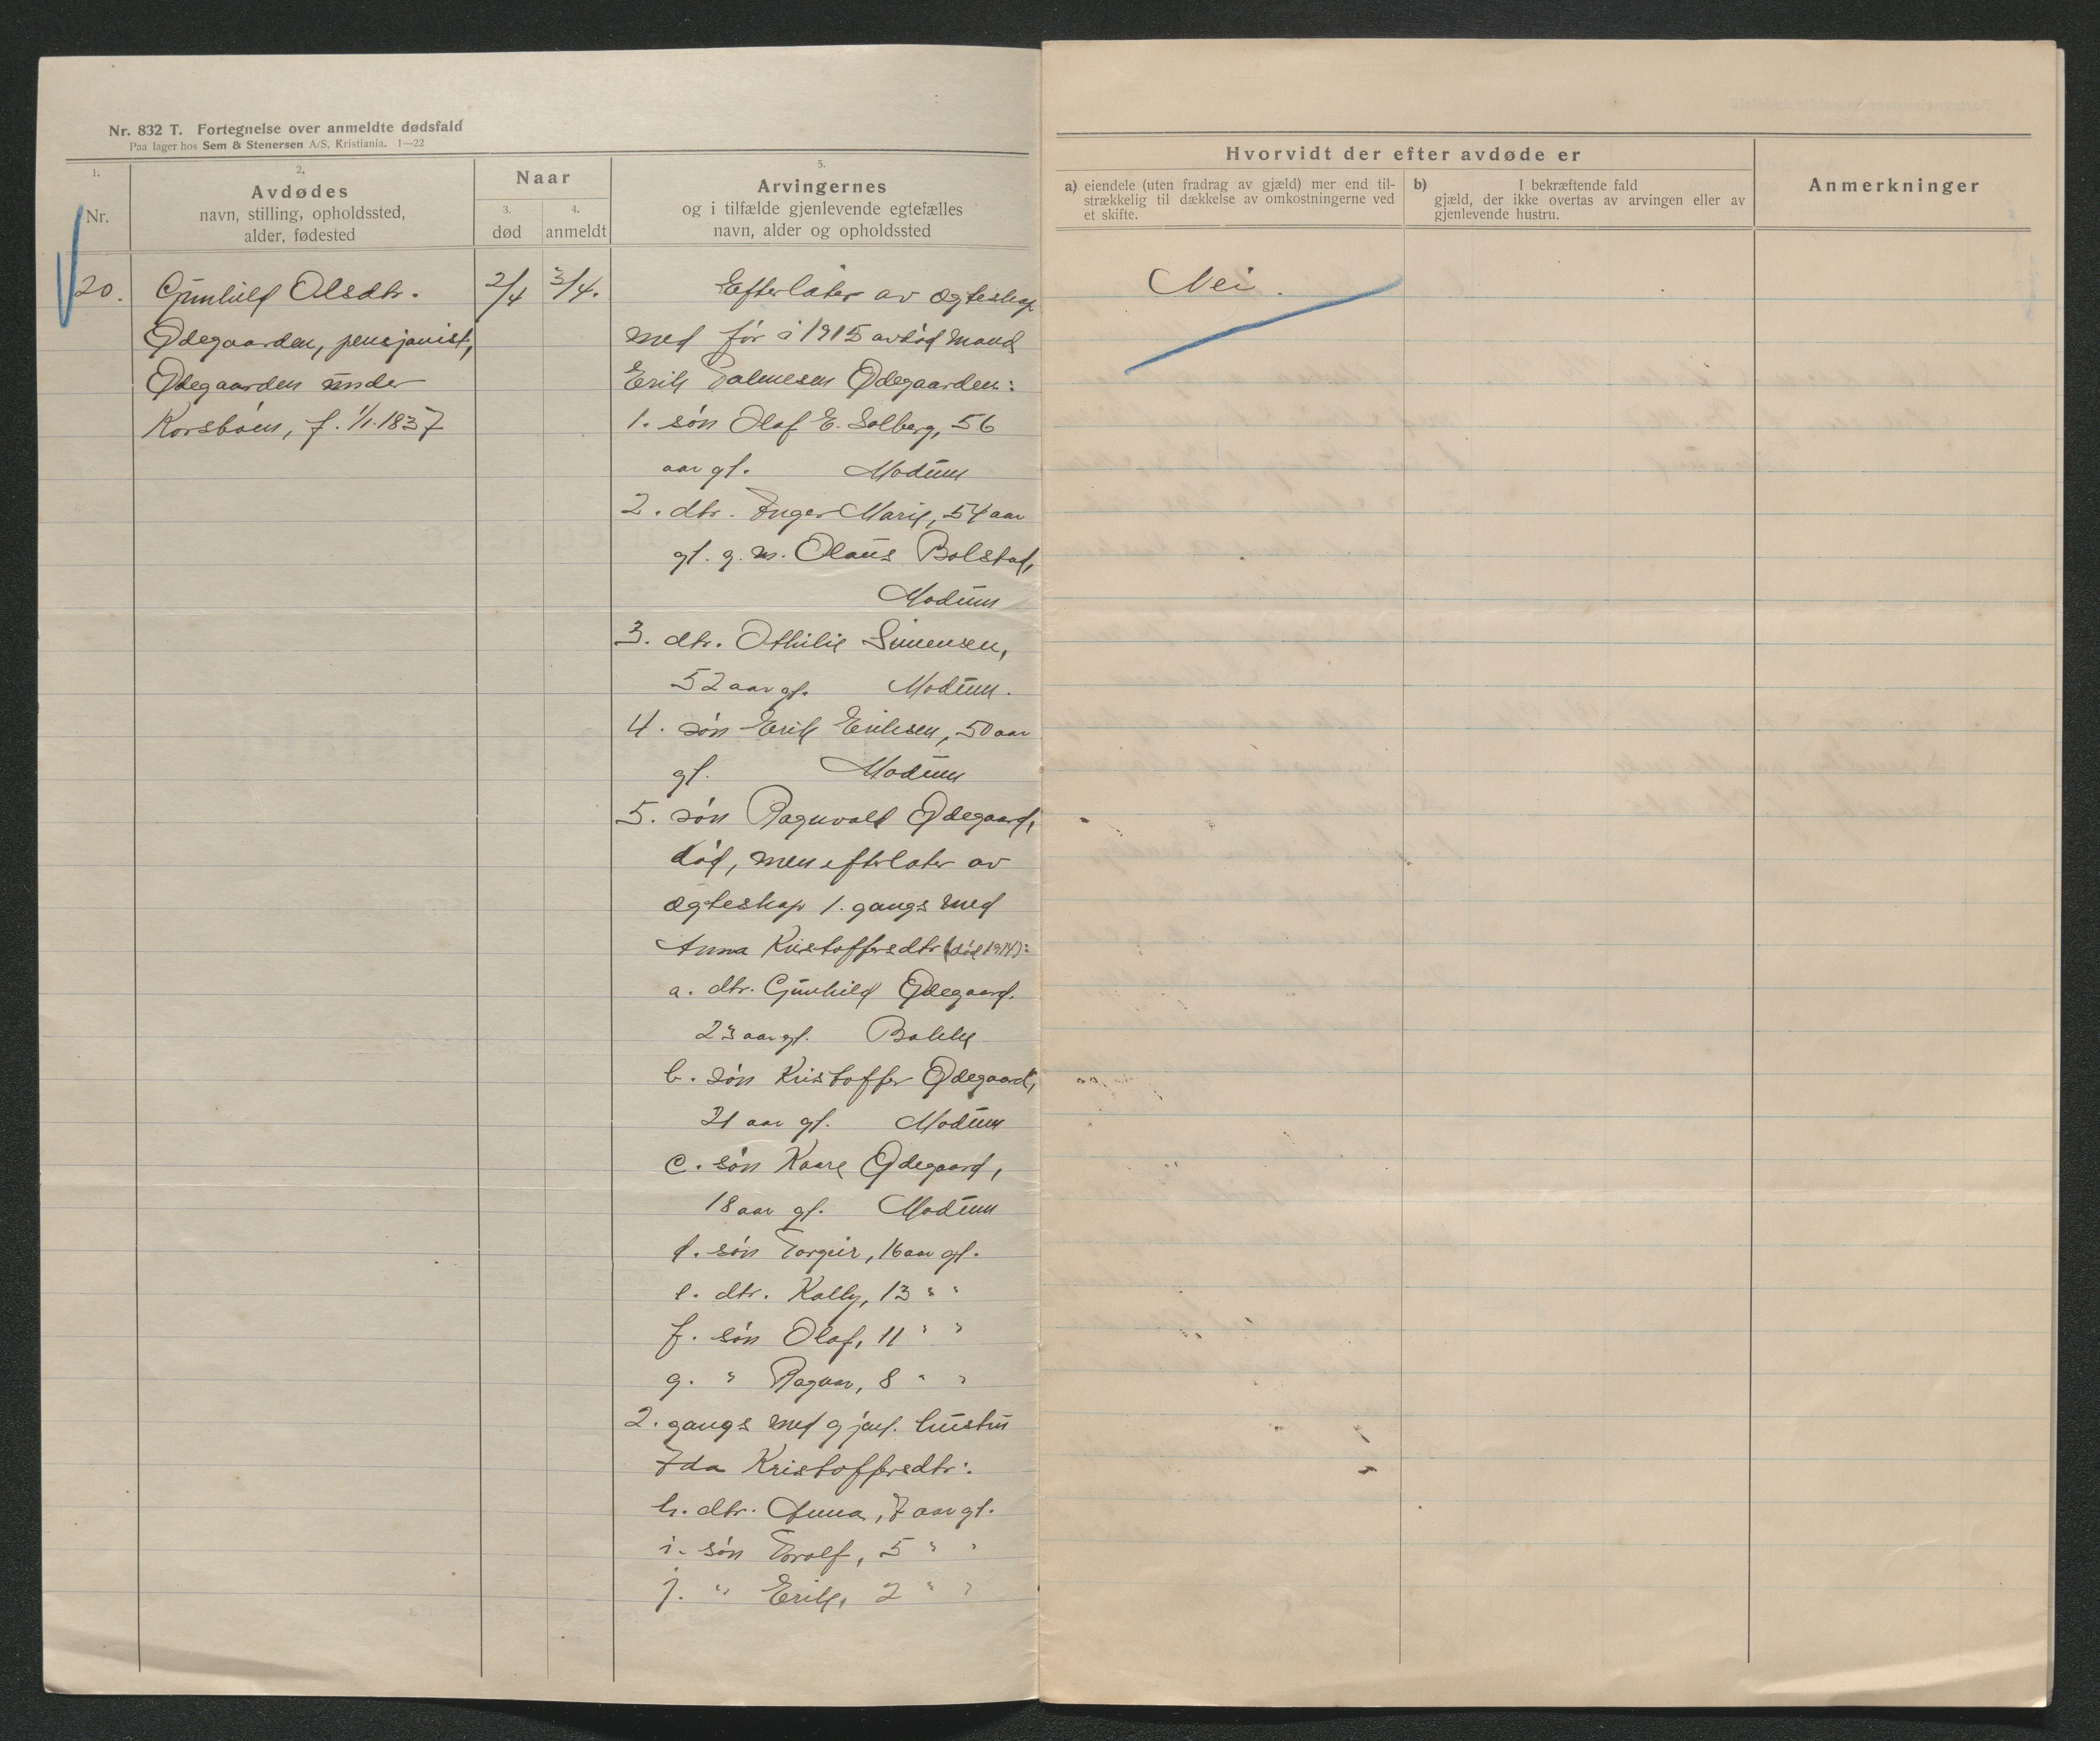 Nr. 832 T. Fortegnelse over anmeldte dødsfald
Paa lager hos Sem & Stenersen A/S, Kristiania. 1—22
1.
Nr.
2.
Avdødes
navn, stilling, opholdssted,
alder, fødested
Naar
3.
død
4.
anmeldt
5.
Arvingernes
og i tilfælde gjenlevende egtefælles
navn, alder og opholdssted
Hvorvidt der efter avdøde er
a) eiendele (uten fradrag av gjæld) mer end til-
strækkelig til dækkelse av omkostningerne ved
et skifte.
b) I bekræftende fald
gjæld, der ikke overtas av arvingen eller av
gjenlevende hustru.
Anmerkninger
20.
Gunhild Olsdtr.
Ødegaarden, pensjonist,
Ødegaarden under
Korsbøen, f. 1/1.1837
2/4
3/4.
Efterlater av ægteskap
med før i 1915 avdød mand
Erik Palmesen Ødegaarden:
1. søn Olaf E. Solberg, 56
aar gl. Modum
2. dtr. Inger Marie, 54 aar
gl. g. m. Olaus Bolstad,
Modum
3. dtr. Othilie Simensen,
52 aar gl. Modum.
4. søn Erik Eriksen, 50 aar
gl. Modum
5. søn Ragnvald Ødegaard,
død, men efterlater av
ægteskap 1. gangs med
Anna Kristoffersdtr (død 1914):
a. dtr. Gunhild Ødegaard.
23 aar gl. Bakke
b. søn Kristoffer Ødegaard,
21 aar gl. Modum
c. søn Kaare Ødegaard,
18 aar gl. Modum
d. søn Torgeir, 16 aar gl.
e. dtr. Kally, 13 " "
f. søn Olaf, 11 " "
g. " Ragnar, 8 " "
2. gangs med gjenl. hustru
Ida Kristoffersdtr:
h. dtr. Anna, 7 aar gl.
i. søn Torolf, 5 " "
j. " Erik, 2 " "
Nei.